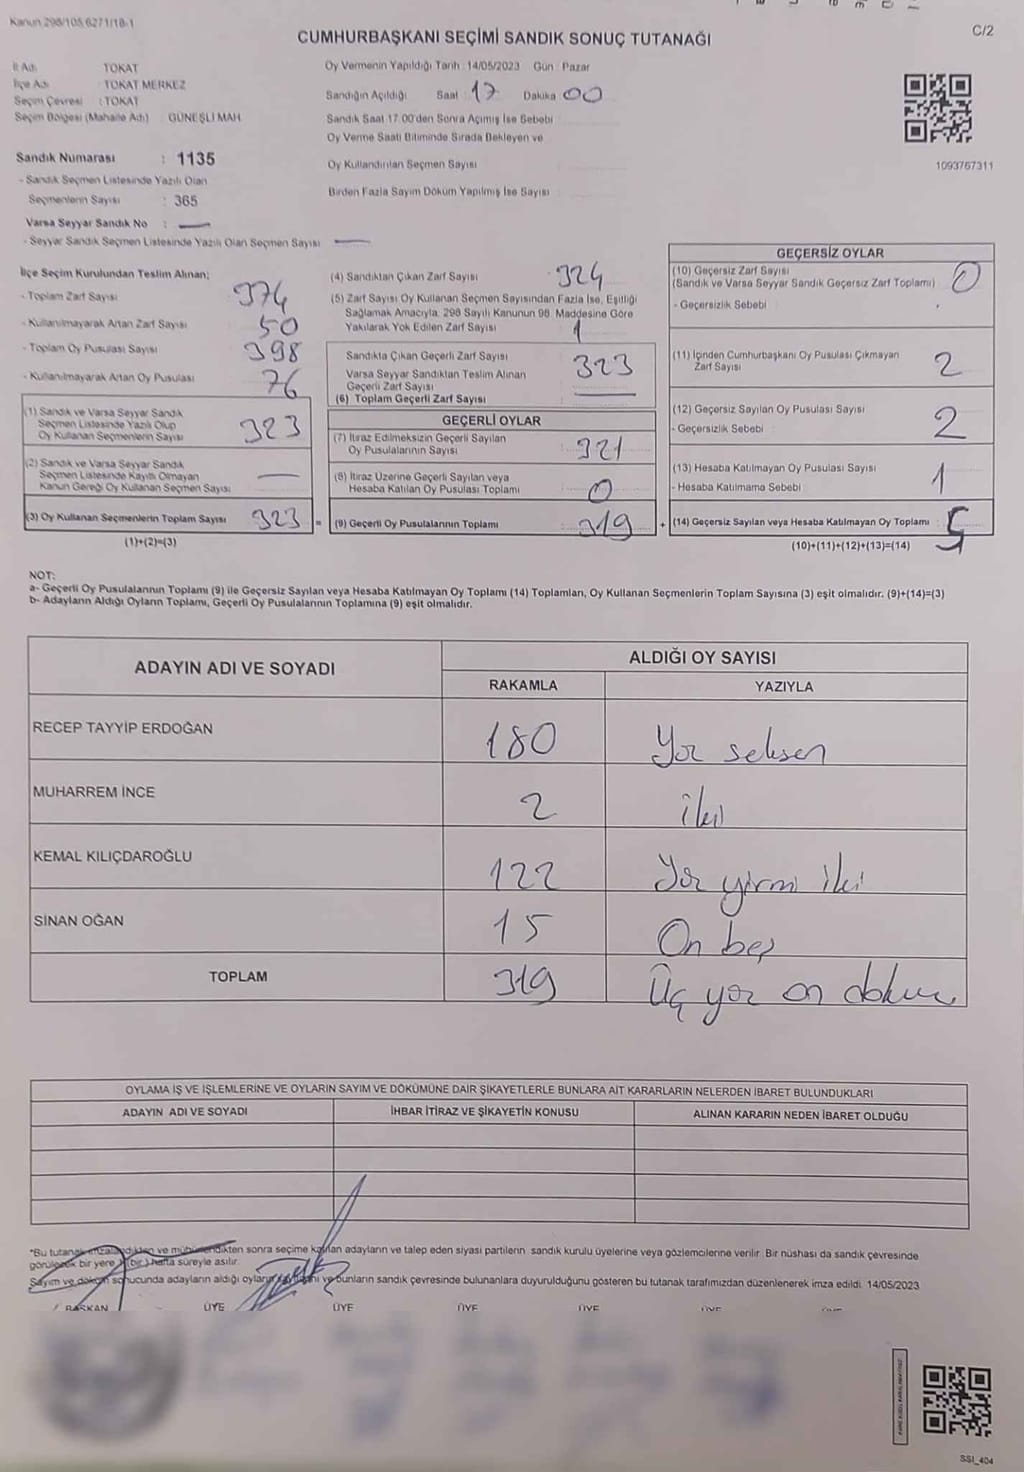 Kanun 298/105,6271/18-1
C/2
CUMHURBAŞKANI SEÇİMİ SANDIK SONUÇ TUTANAĞI
İl Adı TOKAT
İlçe Adı : TOKAT MERKEZ
Seçim Çevresi : TOKAT
Seçim Bölgesi (Mahalle Adı) : GÜNEŞLİ MAH
Sandık Numarası : 1135
- Sandık Seçmen Listesinde Yazılı Olan
Seçmenlerin Sayısı : 365
Varsa Seyyar Sandık No : —
- Seyyar Sandık Seçmen Listesinde Yazılı Olan Seçmen Sayısı —
Oy Vermenin Yapıldığı Tarih : 14/05/2023 Gün : Pazar
Sandığın Açıldığı Saat : 17 Dakika 00
Sandık Saat 17:00'den Sonra Açılmış İse Sebebi
Oy Verme Saati Bitiminde Sırada Bekleyen ve
Oy Kullandırılan Seçmen Sayısı
Birden Fazla Sayım Döküm Yapılmış İse Sayısı
1093767311
İlçe Seçim Kurulundan Teslim Alınan;
- Toplam Zarf Sayısı 374
- Kullanılmayarak Artan Zarf Sayısı 50
- Toplam Oy Pusulası Sayısı 398
- Kullanılmayarak Artan Oy Pusulası 76
(1) Sandık ve Varsa Seyyar Sandık
Seçmen Listesinde Yazılı Olup
Oy Kullanan Seçmenlerin Sayısı 323
(2) Sandık ve Varsa Seyyar Sandık
Seçmen Listesinde Kayıtlı Olmayan
Kanun Gereği Oy Kullanan Seçmen Sayısı —
(3) Oy Kullanan Seçmenlerin Toplam Sayısı 323 =
(1)+(2)=(3)
(4) Sandıktan Çıkan Zarf Sayısı 324
(5) Zarf Sayısı Oy Kullanan Seçmen Sayısından Fazla İse, Eşitliği
Sağlamak Amacıyla, 298 Sayılı Kanunun 98. Maddesine Göre
Yakılarak Yok Edilen Zarf Sayısı 1
Sandıkta Çıkan Geçerli Zarf Sayısı 323
Varsa Seyyar Sandıktan Teslim Alınan
Geçerli Zarf Sayısı —
(6) Toplam Geçerli Zarf Sayısı
GEÇERLİ OYLAR
(7) İtiraz Edilmeksizin Geçerli Sayılan
Oy Pusulalarının Sayısı 321
(8) İtiraz Üzerine Geçerli Sayılan veya
Hesaba Katılan Oy Pusulası Toplamı 0
(9) Geçerli Oy Pusulalarının Toplamı : 319 +
GEÇERSİZ OYLAR
(10) Geçersiz Zarf Sayısı
(Sandık ve Varsa Seyyar Sandık Geçersiz Zarf Toplamı) 0
- Geçersizlik Sebebi
(11) İçinden Cumhurbaşkanı Oy Pusulası Çıkmayan
Zarf Sayısı 2
(12) Geçersiz Sayılan Oy Pusulası Sayısı 2
- Geçersizlik Sebebi
(13) Hesaba Katılmayan Oy Pusulası Sayısı 1
- Hesaba Katılmama Sebebi
(14) Geçersiz Sayılan veya Hesaba Katılmayan Oy Toplamı : 5
(10)+(11)+(12)+(13)=(14)
NOT:
a- Geçerli Oy Pusulalarının Toplamı (9) ile Geçersiz Sayılan veya Hesaba Katılmayan Oy Toplamı (14) Toplamları, Oy Kullanan Seçmenlerin Toplam Sayısına (3) eşit olmalıdır. (9)+(14)=(3)
b- Adayların Aldığı Oyların Toplamı, Geçerli Oy Pusulalarının Toplamına (9) eşit olmalıdır.
ADAYIN ADI VE SOYADI ALDIĞI OY SAYISI
RAKAMLA YAZIYLA
RECEP TAYYİP ERDOĞAN 180 Yüz seksen
MUHARREM İNCE 2 iki
KEMAL KILIÇDAROĞLU 122 Yüz yirmi iki
SİNAN OĞAN 15 On beş
TOPLAM 319 Üç yüz on dokuz
OYLAMA İŞ VE İŞLEMLERİNE VE OYLARIN SAYIM VE DÖKÜMÜNE DAİR ŞİKAYETLERLE BUNLARA AİT KARARLARIN NELERDEN İBARET BULUNDUKLARI
ADAYIN ADI VE SOYADI İHBAR İTİRAZ VE ŞİKAYETİN KONUSU ALINAN KARARIN NEDEN İBARET OLDUĞU
*Bu tutanak imzalandıktan ve mühürlendikten sonra seçime katılan adayların ve talep eden siyasi partilerin sandık kurulu üyelerine veya gözlemcilerine verilir. Bir nüshası da sandık çevresinde
görülecek bir yere 1(bir) hafta süreyle asılır.
Sayım ve döküm sonucunda adayların aldığı oyların sayısını ve bunların sandık çevresinde bulunanlara duyurulduğunu gösteren bu tutanak tarafımızdan düzenlenerek imza edildi. 14/05/2023
BAŞKAN ÜYE ÜYE ÜYE ÜYE ÜYE
SSİ_404